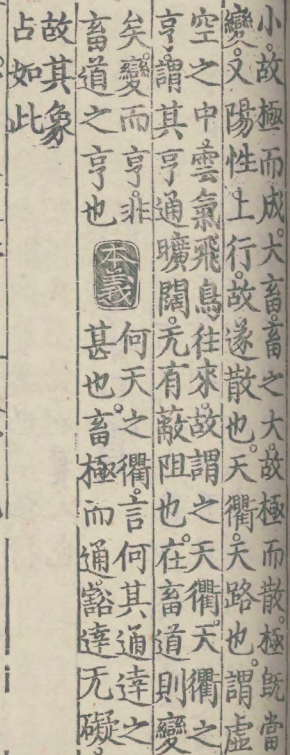 小。故極而成。大畜。畜之大。故極而散。極既當
變。又陽性上行。故遂散也。天衢。天路也。謂虛
空之中雲氣飛鳥往來。故謂之天衢。天衢之
亨。謂其亨通曠闊。无有蔽阻也。在畜道則變
矣。變而亨。非
畜道之亨也
本義
何天之衢。言何其通達之
甚也。畜極而通。豁達无礙。
故其象
占如此